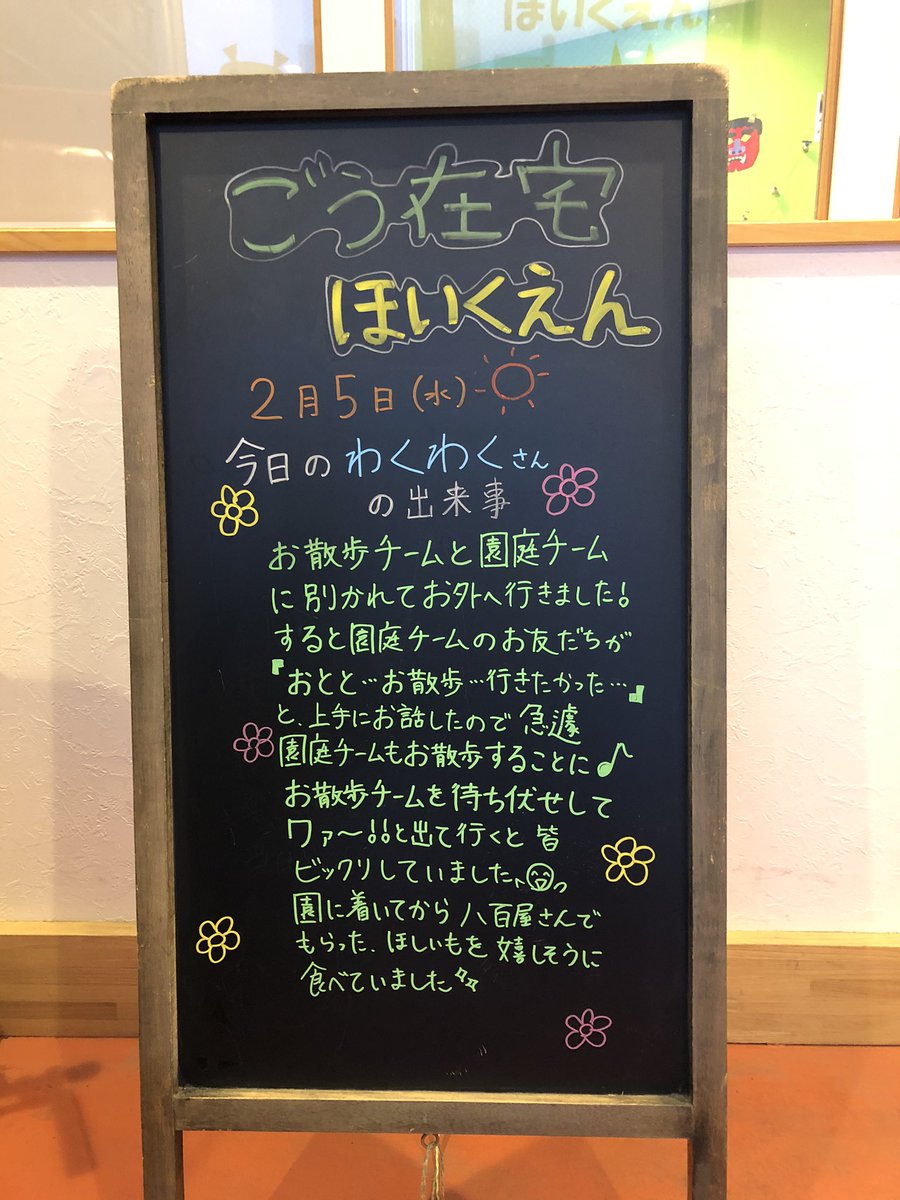 ほいくえん
ごう在宅
ほいくえん
2月5日(水)
今日のわくわくさん
の出来事
お散歩チームと園庭チーム
に別かれてお外へ行きました!
すると園庭チームのお友だちが
『おとと…お散歩…行きたかった…』
と、上手にお話したので急遽
園庭チームもお散歩することに♪
お散歩チームを待ち伏せして
ワァ〜!!と出て行くと皆
ビックリしていました
園に着いてから八百屋さんで
もらった、ほしいもを嬉しそうに
食べていました